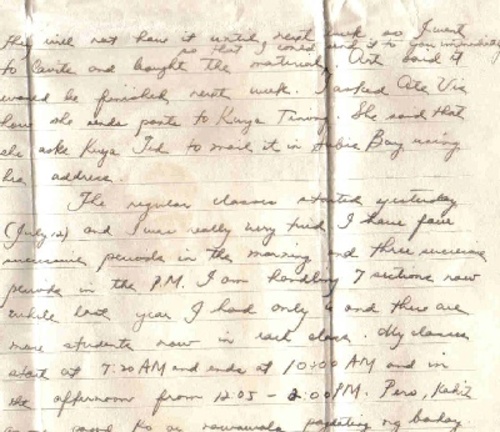 they will not have it until next week so I went
so that I could send it to you immediately
to Cavite and bought the material. Art said it
would be finished next week. I asked Ate Vis
how she sends pants to Kuya Tining. She said that
she asks Kuya Ted to mail it in Subic Bay using
his address.
The regular classes started yesterday
(July 12) and I was really very tired. I have four
successive periods in the morning and three successive
periods in the P.M. I am handling 7 sections now
while last year I had only 6 and there are
more students now in each class. My classes
start at 7:20 AM and ends at 10:00 AM and in
the afternoon from 12:05 - 2:00 PM. Pero, kahit
pagod ko ay nawawala pagdating ng bahay.